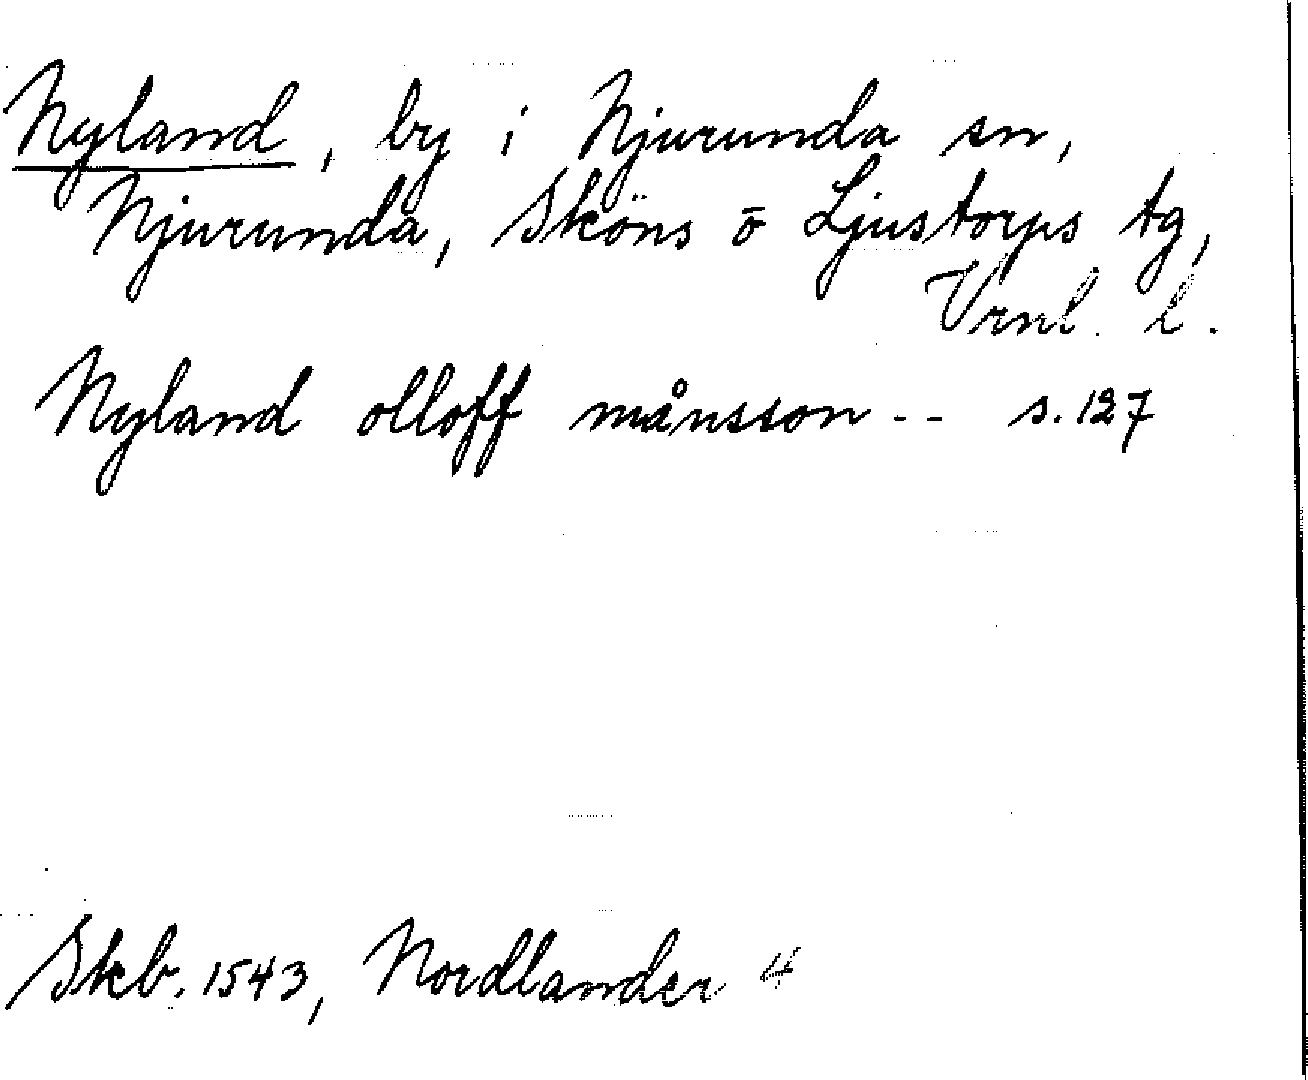 Nyland, by i Njurunda sn,
Njurunda, Sköns o Ljustorps tg,
Vrnl. l.
Nyland olloff månsson -- s. 127
Skb. 1543, Nordlander 4